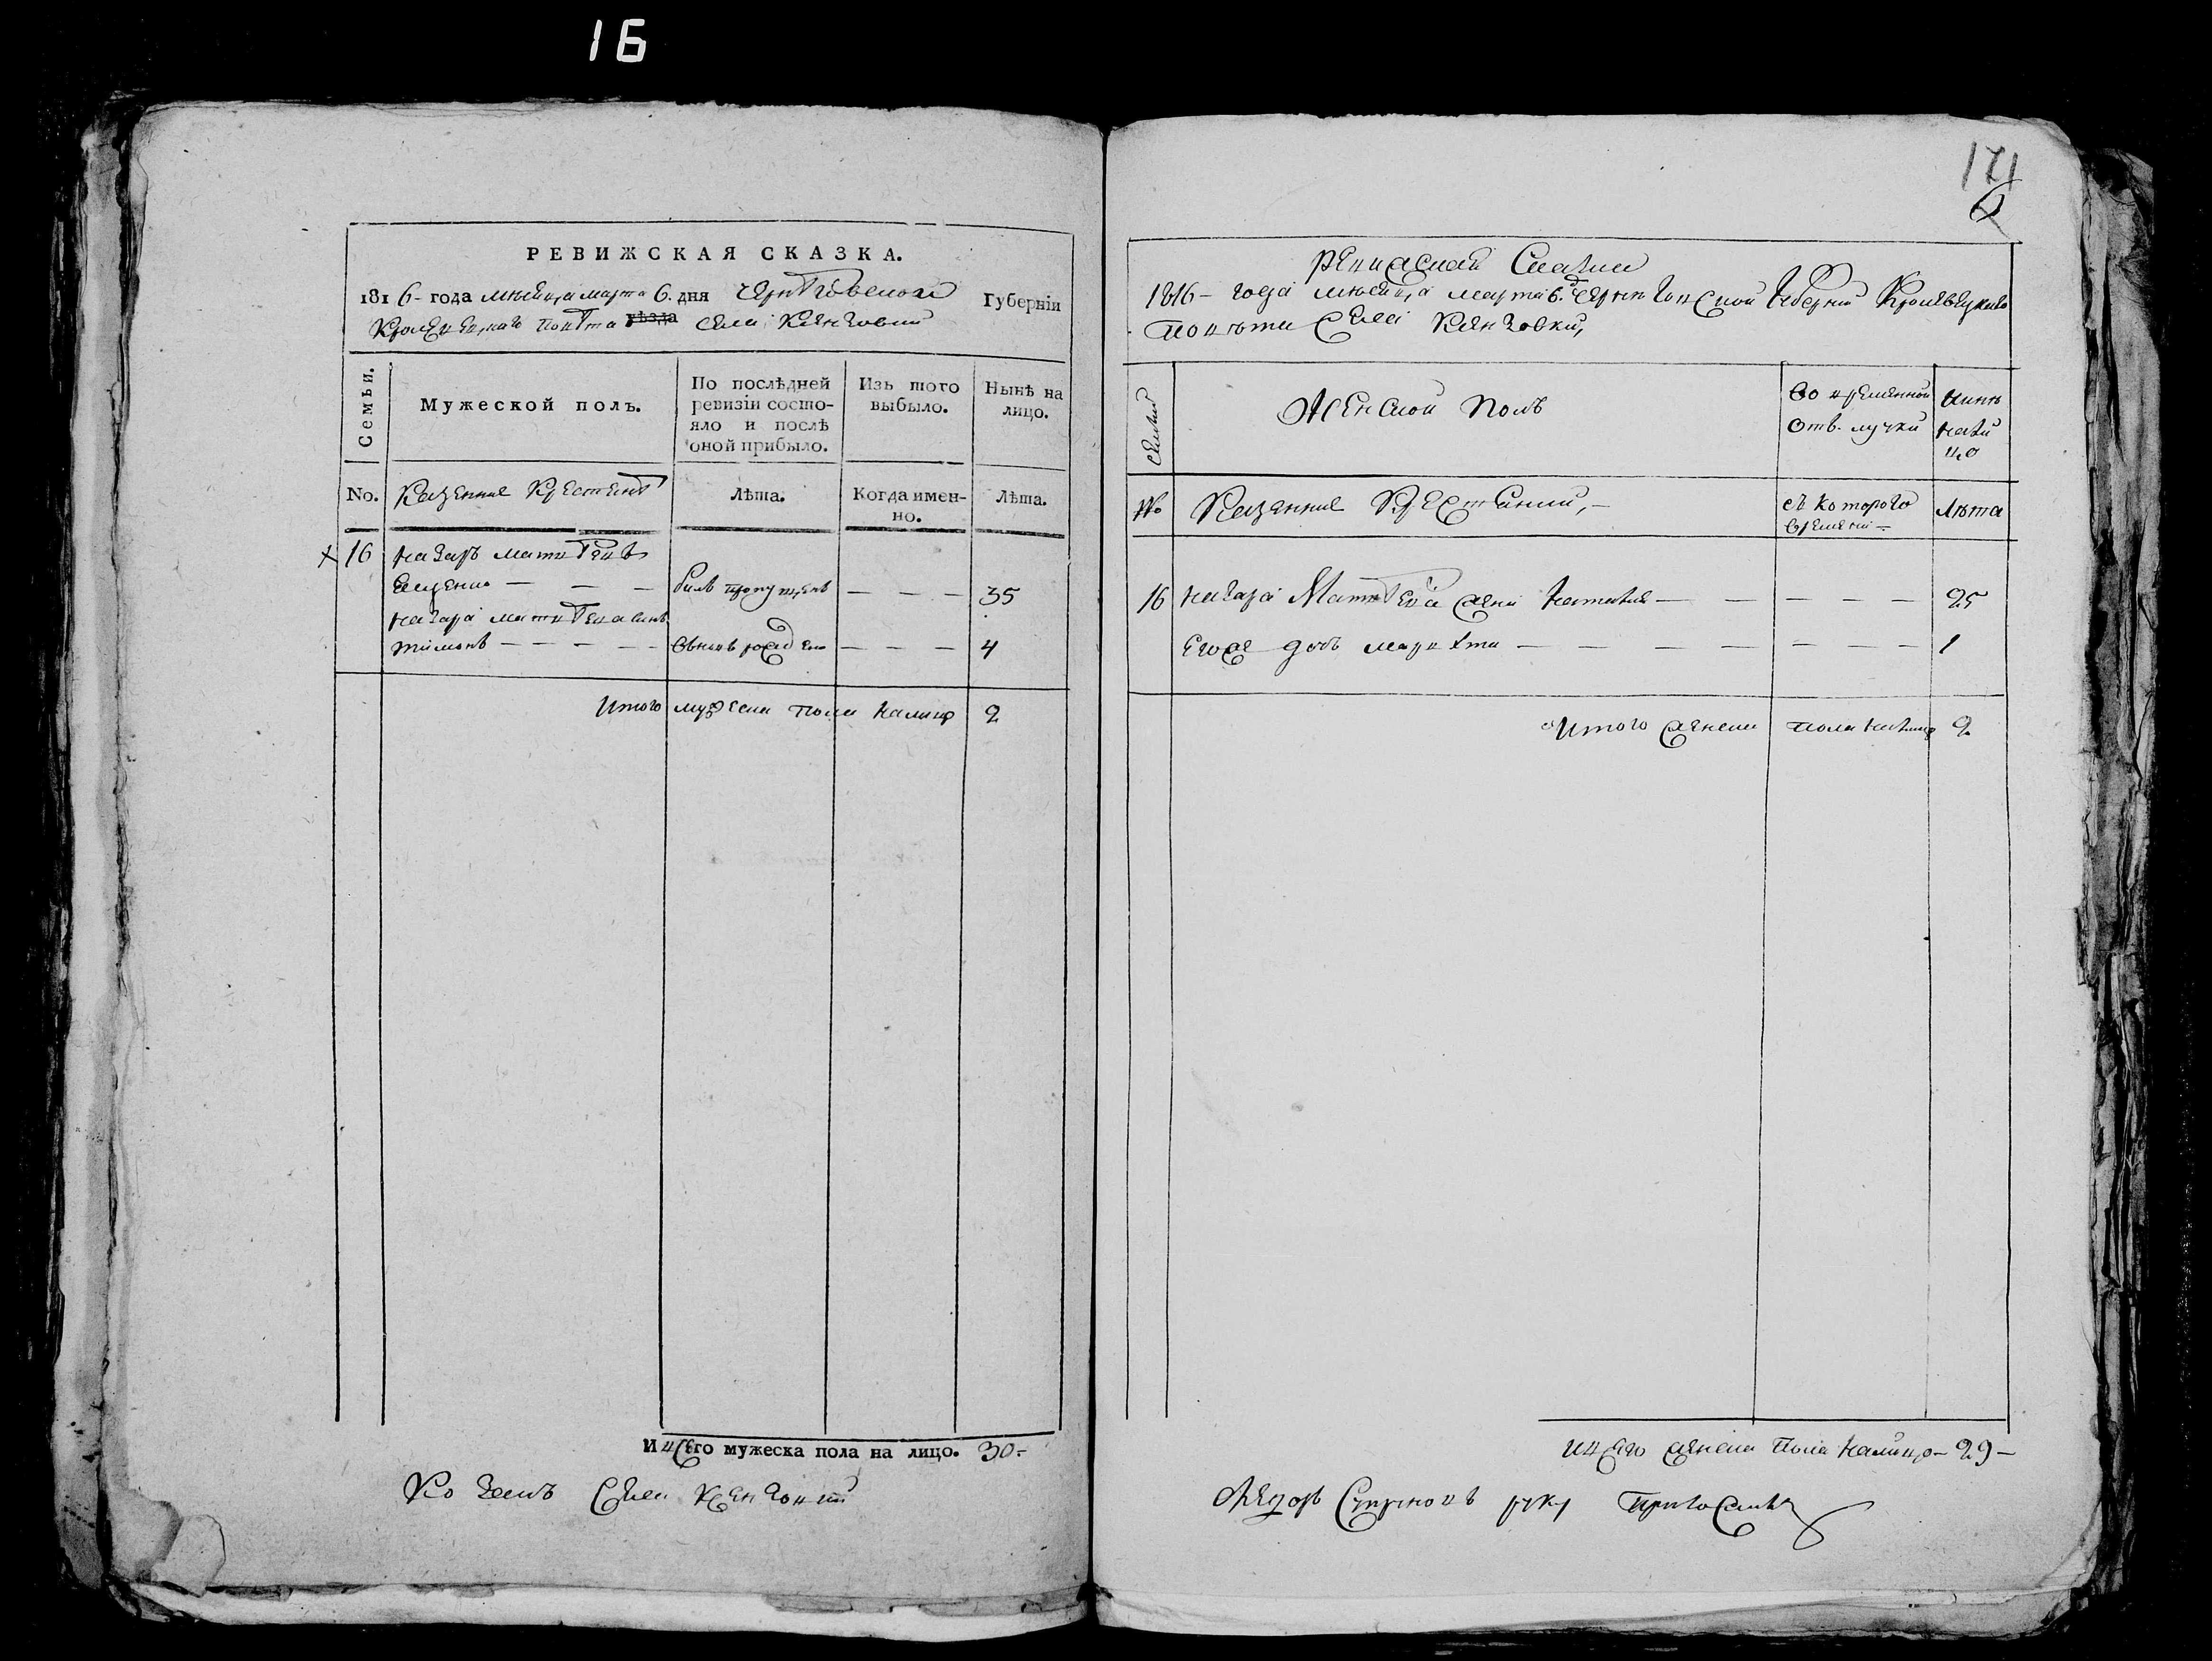 16
РЕВИЖСКАЯ СКАЗКА.
1816- года мѣсяца марта 6. дня Черниговской Губерніи
Кролевецкаго повѣта уѣзда села
Семьи.
Мужеской полъ.
По послѣдней
ревизіи состо-
яло и послѣ
оной прибыло.
Изъ того
выбыло.
Нынѣ на
лицо.
No. Казенние Крестяне
Лѣта.
Когда имен-
но.
Лѣта.
16 Назаръ Матвѣевъ
былъ пропущенъ — — — 35
Назара Матвѣева синъ
Тимонъ — — — — вновь рожденъ — — — 4
Итого мужеска пола налицо 2
Ивсего мужеска пола на лицо. 30.-
Козакъ села
171
6
Ревизская Сказка
1816- года мѣсяца марта 6. д Черниговской Губерніи Кролевецкаго
повѣта Села
семьи
Женской полъ
во временной
отлучки
нинѣ
нали
цо
No Казенние Крестянки,-
съ которого
времени -
Лѣта
16 Назара Матвѣева жена Наталия — — — — — 25
Егоже дочь — — — — — — — 1
Итого женска пола налицо 2
Ивсего женска пола налицо - 29 -
руку приложилъ